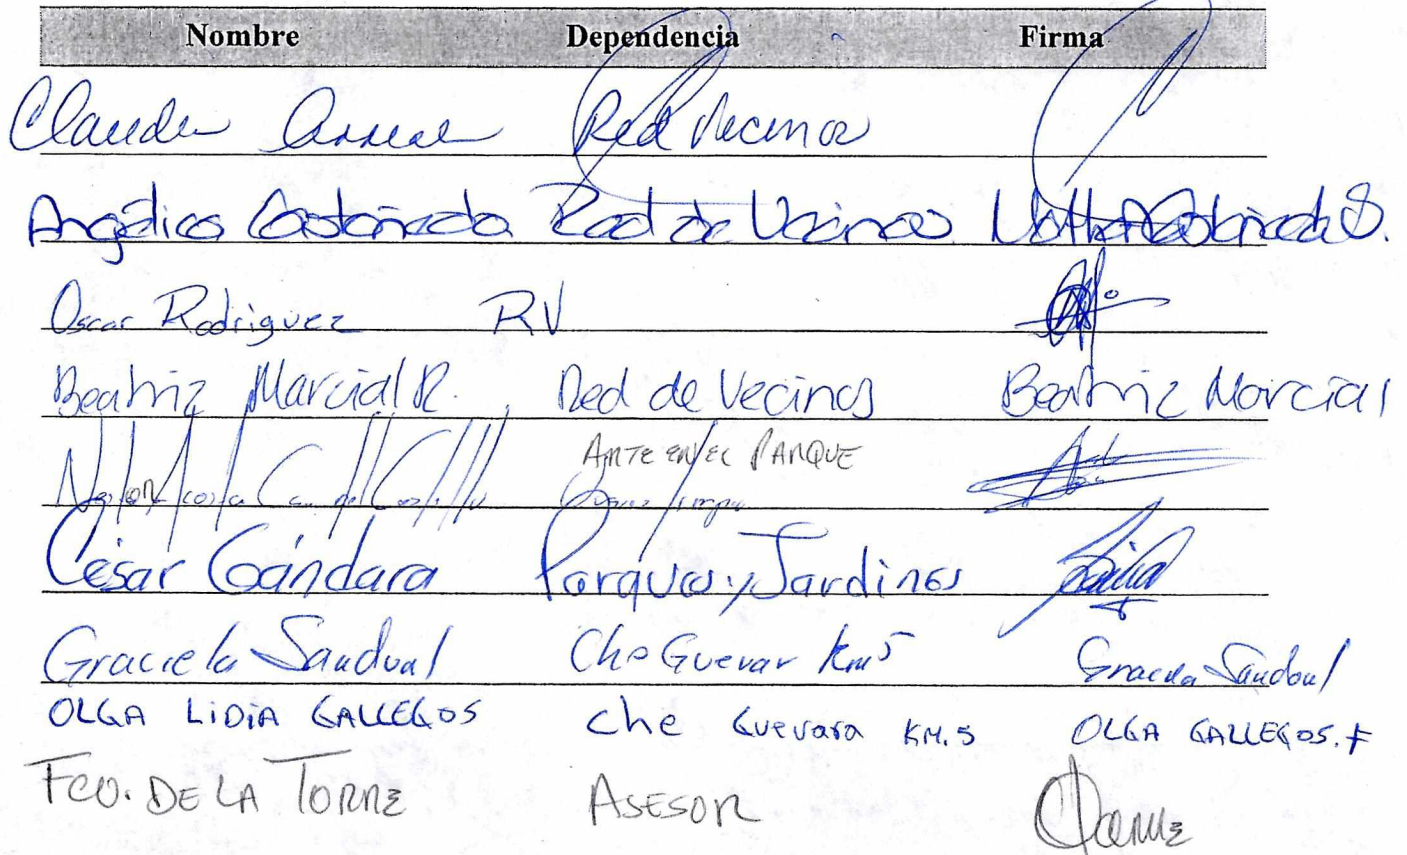 Nombre Dependencia Firma
Claudia Arreal Red Vecinos
Angélica Castañeda Red de Vecinos Castañeda S.
Oscar Rodriguez RV
Beatriz Marcial R. Red de Vecinos Beatriz Marcial
ARTE EN EL PARQUE
Nestor Acosta
César Gándara Parques y Jardines
Graciela Sandoval Che Guevar Km5 Graciela Sandoval
OLGA LiDiA GALLEGOS Che Guevara KM.5 OLGA GALLEGOS. F
FCO. DE LA TORRE ASESOR